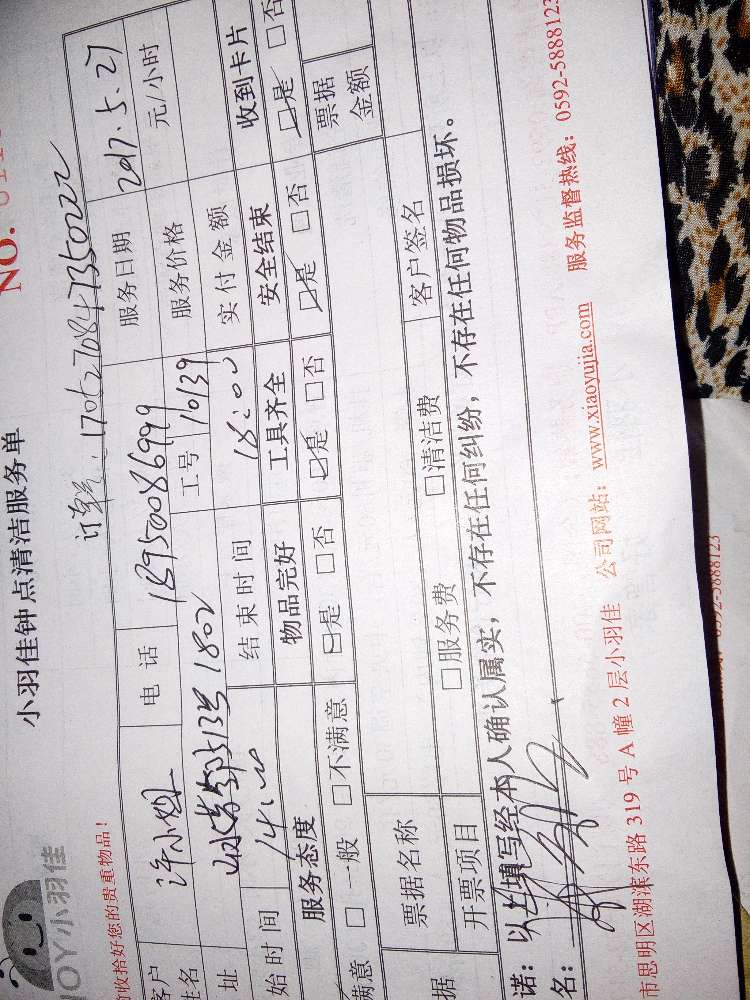 小羽佳钟点清洁服务单
NO.
JOY小羽佳
收拾好您的贵重物品!
订单号:1705270847350222
客户姓名 许小姐 电话 18950086999 服务日期 2017.5.27
址 1802 工号 10139 服务价格 元/小时
始时间 14:00 结束时间 18:00 实付金额
服务态度 物品完好 工具齐全 安全结束 收到卡片
满意 □一般 □不满意 □是 □否 □是 □否 □是 □否 □是 □否
据 票据名称 票据金额
开票项目 □服务费 □清洁费 客户签名
诺:以上填写经本人确认属实,不存在任何纠纷,不存在任何物品损坏。
名:
市思明区湖滨东路 319 号 A 幢 2 层小羽佳 公司网站:www.xiaoyujia.com 服务监督热线:0592-5888123
0592-5888123